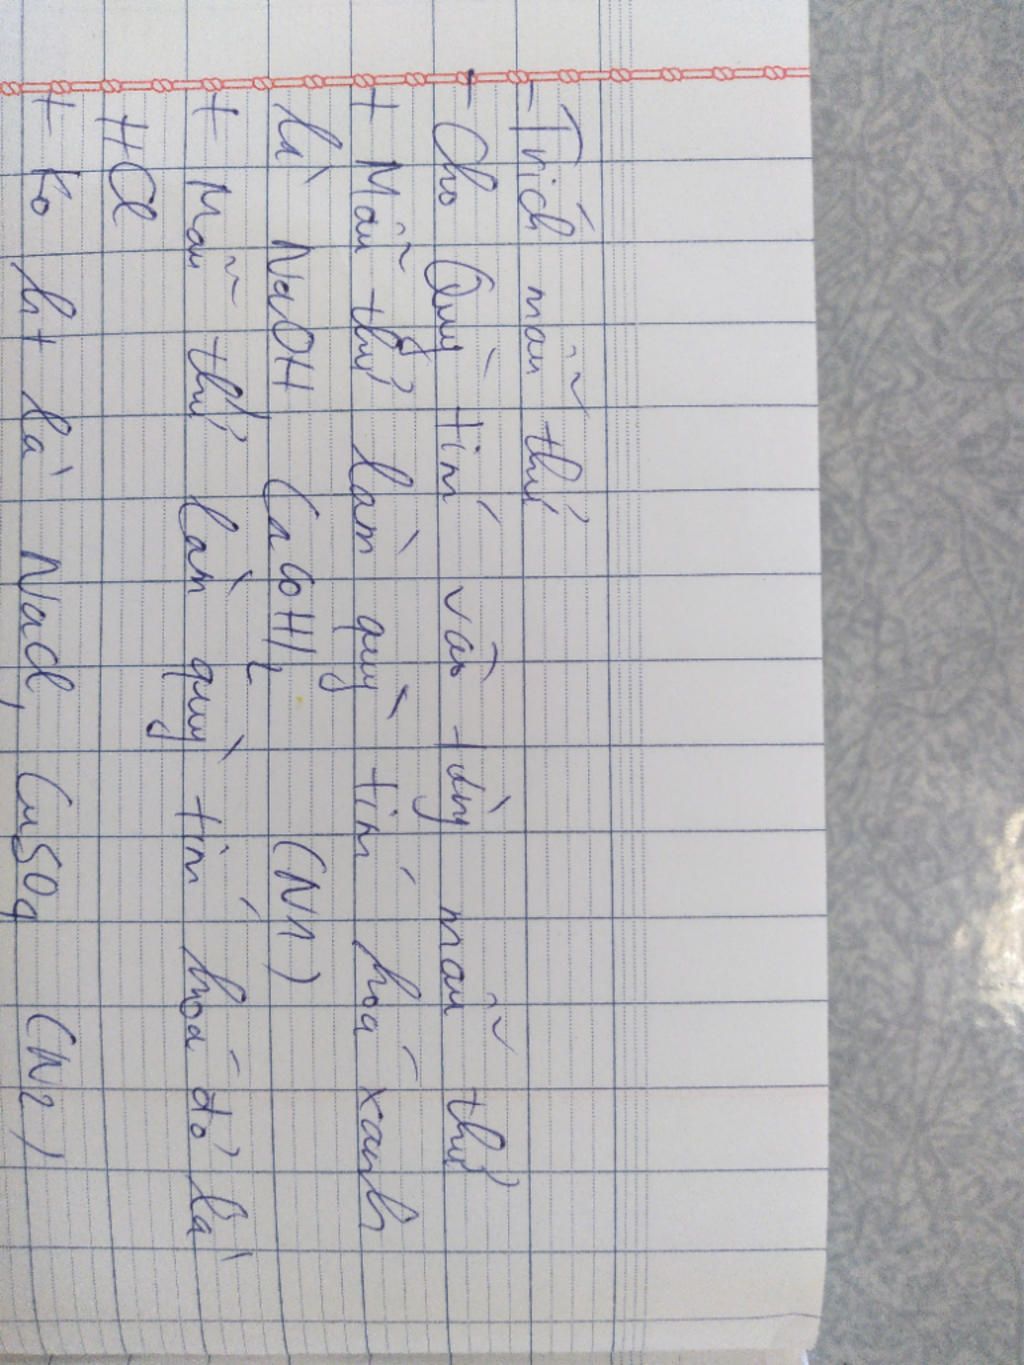 - Trích mẫu thử
- Cho Quỳ tím vào từng mẫu thử
+ Mẫu thử làm quỳ tím hoá xanh
là NaOH Ca(OH)2 (N1)
+ Mẫu thử làm quỳ tím hoá đỏ là
HCl
+ Ko ht là NaCl, CuSO4 (N2)